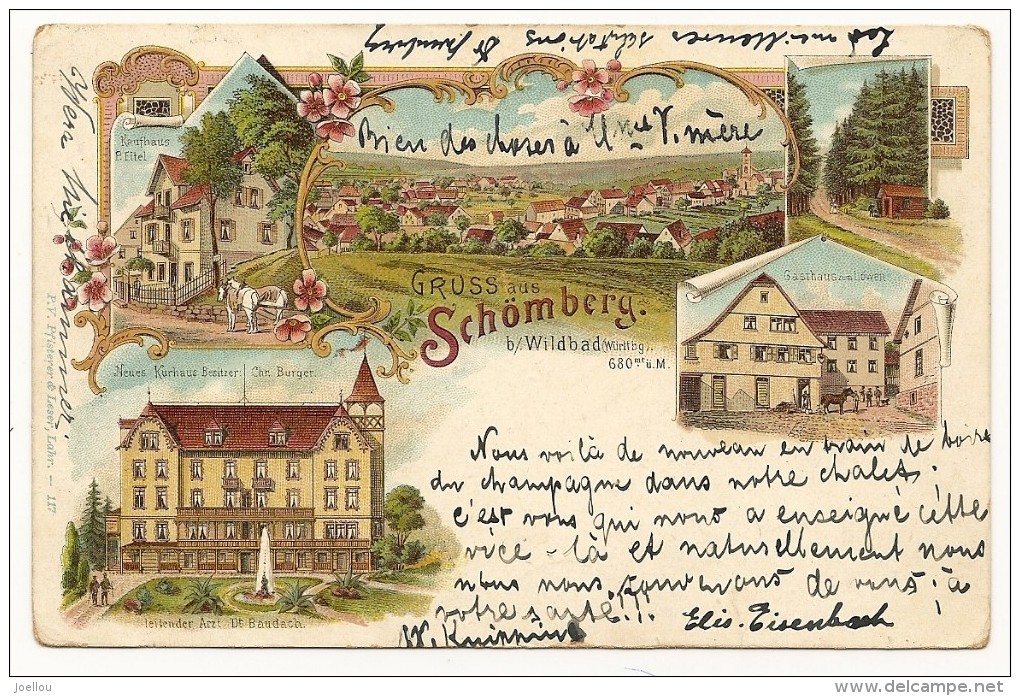 Les meilleures salutations Dr
Bien des choses à Mme V. mère
Kaufhaus
P. Eitel
Gasthaus z. Löwen
GRUSS aus
Schömberg.
b/ Wildbad (Württbg).
680 mtr ü. M.
Neues Kurhaus Besitzer: Chr. Burger.
leitender Arzt Dr. Baudach.
P. V. Pfisterer & Leser, Lahr. — 117
Nous voilà de nouveau en train de boire
du champagne dans notre chalet.
c'est vous qui nous a enseigné cette
vice-là et naturellement nous
nous nous souvenons de vous à
votre santé!!!
Elis. Eisenbach
joellou
delcampe.net